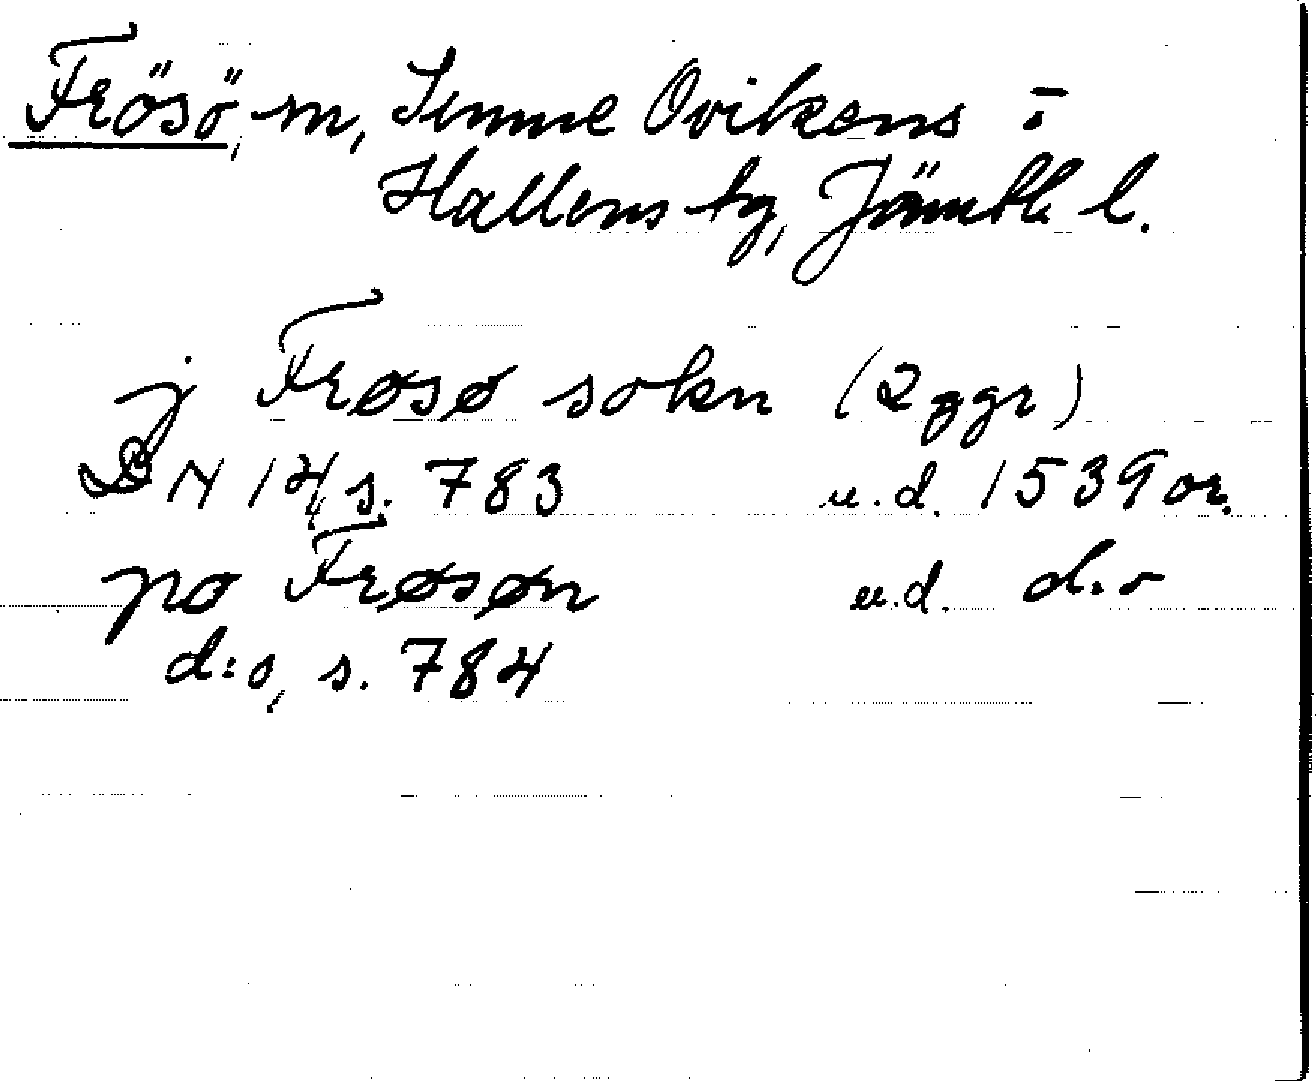 Frösö, sn, Sunne Ovikens o.
Hallens tg, Jämtl. l.
j Frøsø sokn (2 ggr)
DN 14, s. 783 u.d. 1539 or.
po Frøsøn u.d. d:o
d:o, s. 784